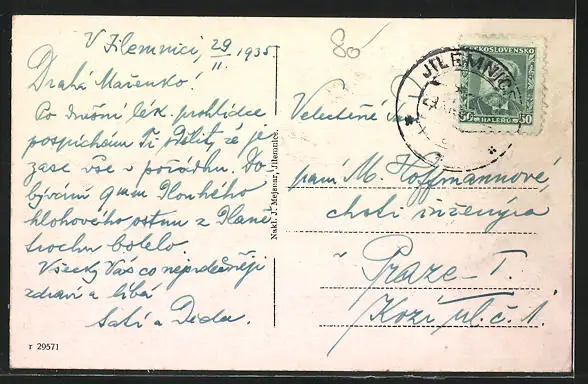 V Jilemnici, 29/II. 1935
80
Drahá Mařenko!
Po dnešní lék. prohlídce
pospíchám Ti sdělit, že je
zase vše v pořádku. Do-
bývání 9 mm dlouhého
hlohového ostnu z dlaně
trochu bolelo.
Všecky Vás co nejsrdečněji
zdraví a líbá
a Děda.
r 29571
Nakl. J. Mejsnar, Jilemnice.
ČESKOSLOVENSKO
50 HALÉŘŮ 50
JILEMNICE
Velectěná
paní M. Hoffmannové,
choti inženýra
v Praze - I.
Kozí ul. č. 1.